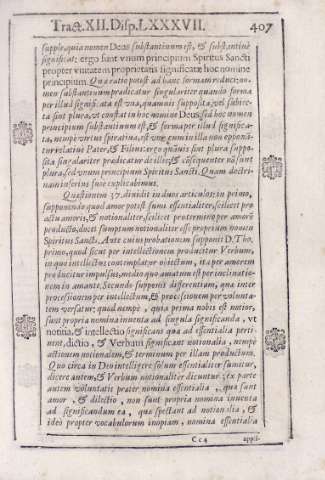 Tract. XII. Disp. LXXXVII. 407
supple, quia nomen Deus substantiuum est, & substantiuè
significat: ergo sunt vnum principium Spiritus Sancti
propter vnitatem proprietatis significatæ hoc nomine
principium. Quæ ratio potest ad hanc formam reduci: nomen
substantiuum prædicatur singulariter quando forma
per illud significata est vna, quamuis supposita, vel subiecta
sint plura, vt constat in hoc nomine Deus, sed hoc nomen
principium substantiuum est, & forma per illud significata,
nempè virtus spiratiua, est vna, cum in illa non opponãtur
relatiuè Pater, & Filius: ergo quãuis sint plura supposita
singulariter prædicatur de illis, & cõsequenter nõ sunt
plura, sed vnum principium Spiritus Sancti. Quam doctrinam
inferius fusè explicabimus.
Quæstionem 37. diuidit in duos articulos: in primo,
supponendo quod amor potest sumi essentialiter, scilicet pro
actu amoris, & notionaliter, scilicet pro termino per amorẽ
producto, docet sumptum notionaliter esse proprium nomen
Spiritus Sancti. Ante cuius probationem supponit D. Tho.
primo, quod sicut per intellectionem producitur Verbum,
in quo intellectus contemplatur obiectum, ita per amorem
producitur impulsus, medio quo amatum est per inclinationem
in amante. Secundo supponit differentiam, quæ inter
processionem per intellectum, & processionem per voluntatem
versatur; quod nempè, quia prima nobis est notior,
sunt propria nomina inuenta ad singula significanda, vt
notitia, & intellectio significant quæ ad essentialia pertinent,
dictio, & Verbum significant notionalia, nempè
actionem notionalem, & terminum per illam productum.
Quo circa in Deo intelligere solum essentialiter sumitur,
dicere autem, & Verbum notionaliter dicuntur; ex parte
autem voluntatis præter nomina essentialia, quæ sunt
amor, & dilectio, non sunt propria nomina inuenta
ad significandum ea, quæ spectant ad notionalia, &
ideo propter vocabulorum inopiam, nomina essentialia
Cc4 appli-